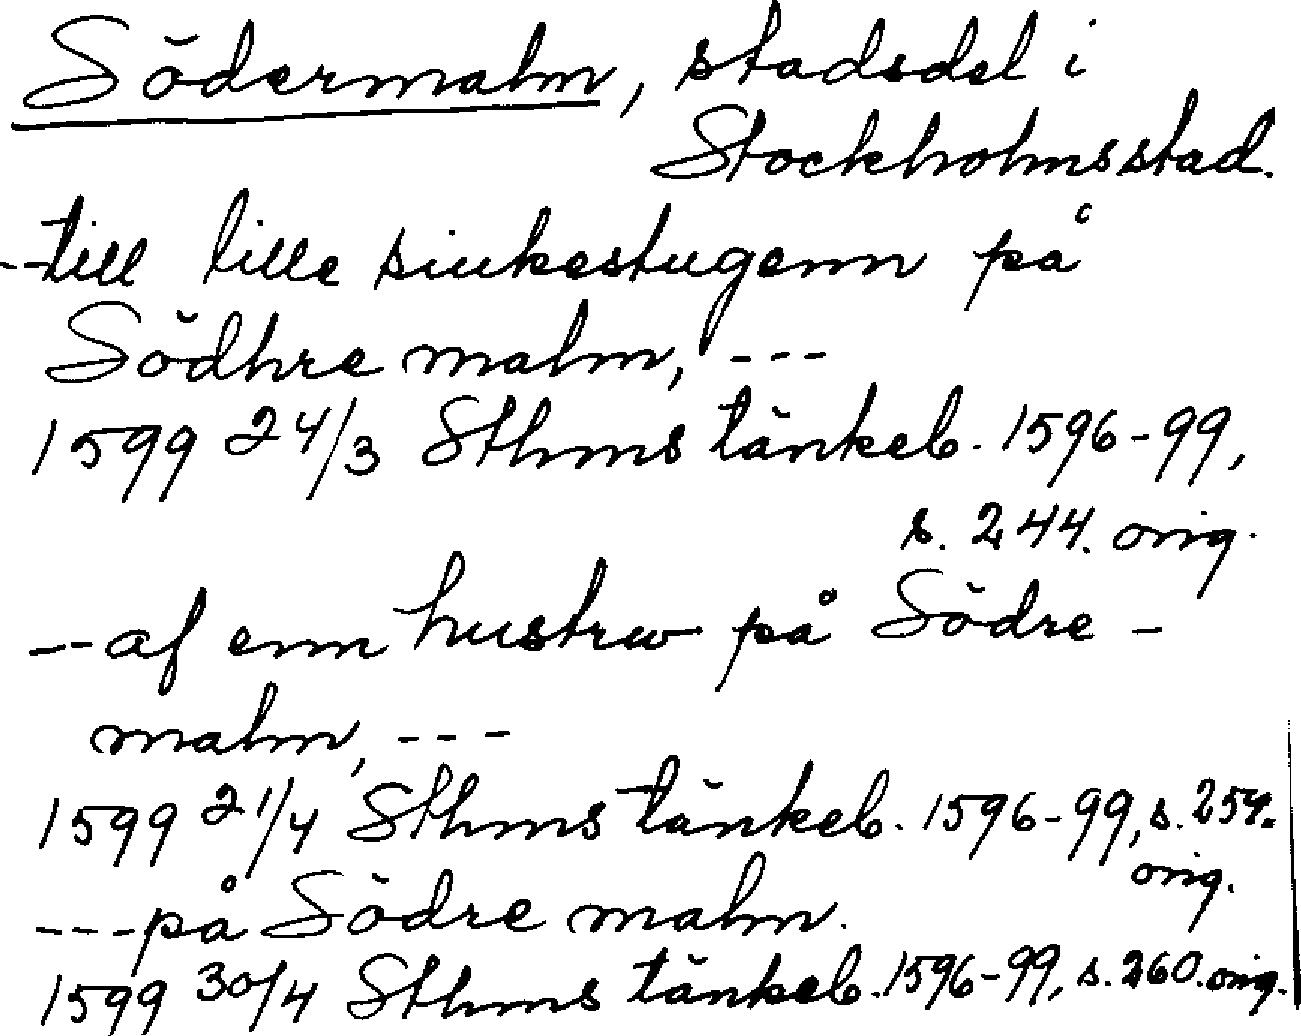 Södermalm, stadsdel i
Stockholmsstad.
--till lille siukestugenn på
Södhre malm, ---
1599 24/3 Sthms tänkeb. 1596-99,
s. 244. orig.
--af enn hustrw på Södre-
malm, ---
1599 21/4 Sthms tänkeb. 1596-99, s. 254.
orig.
---på Södre malm.
1599 30/4 Sthms tänkeb. 1596-99, s. 260. orig.